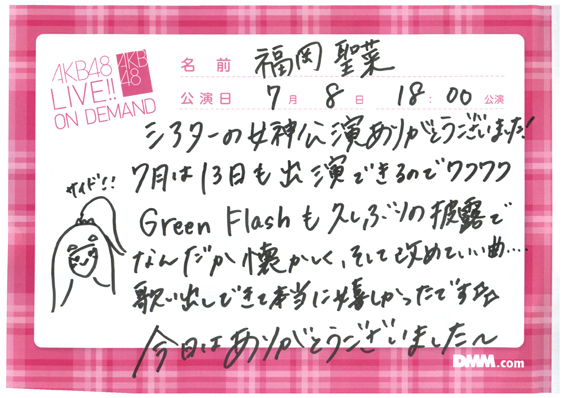 AKB48
LIVE!!
ON DEMAND
AKB
48
名前 福岡聖菜
公演日 7月 8日 18:00公演
シアターの女神公演ありがとうございました!
7月は13日も出演できるのでワクワク
サイド!!
Green Flashも久しぶりの披露で
なんだか懐かしく、そして改めていい曲....
歌い出しできて本当に嬉しかったです☆☆
今日はありがとうございました〜
DMM.com